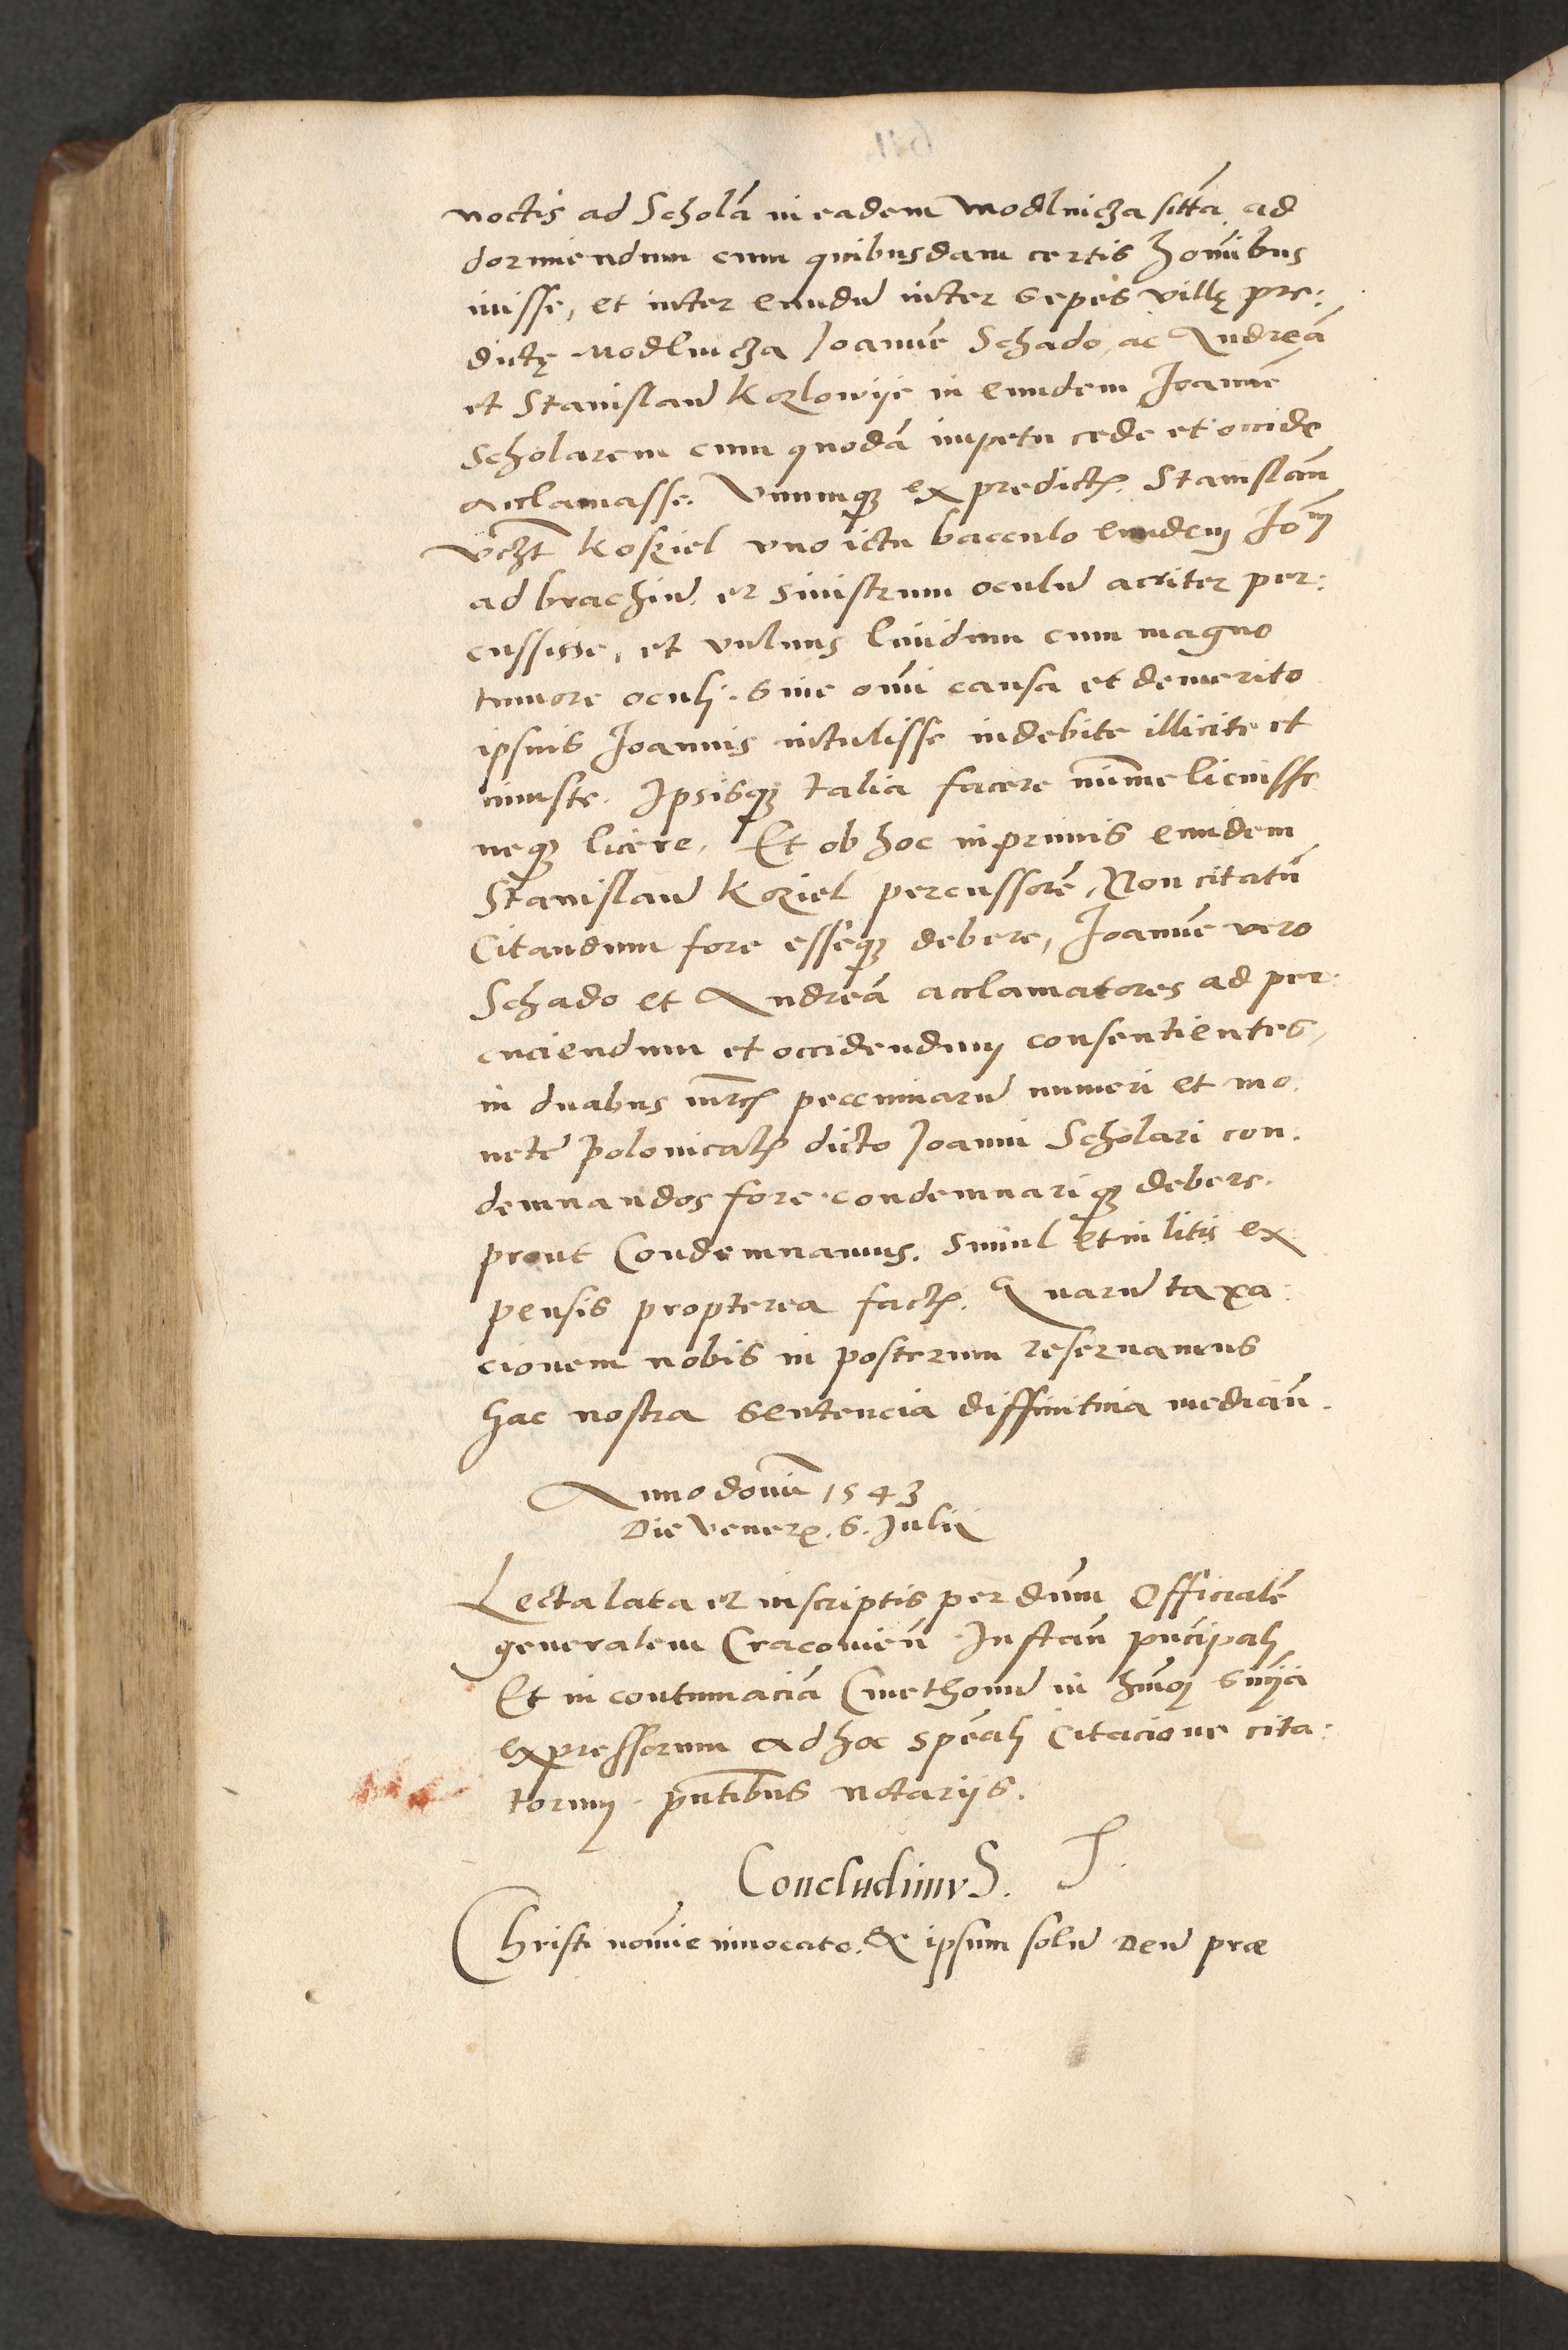 noctis ad Scholā in eadem Modlnicza sittā ad
dormiendum cum quibusdam certis hōibus
iuisse, et inter eundū inter sepes villę pre:
dictę Modlnicza Joannē Schado, ac Andreā
et Stanislaū Kozlowije in eundem Joannē
Scholarem cum quodā impetu cede et occide
acclamasse. Vnumq; ex predict. Stanislaū
vczt Koziel vno ictu bacculo eundem Joēm
ad brachiū et sinistrum oculū acriter per:
cussisse, et vulnus liuidum cum magno
tumore oculi, sine omi causa et demerito
ipsius Joannis intulisse indebite illicite et
iniuste. Ipsisq; talia facere minīme licuisse
neq; licere. Et ob hoc in primis eundem
Stanislaū Koziel percussorē, Non citatū
Citandum fore esseq; debere, Joannē vero
Schado et Andreā acclamatores ad per:
cuciendum et occidendum consentientes,
in duabus mrc. peccuniarū numeri et mo
nete polonicalr. dicto Joanni Scholari con:
demnandos fore condemnariq; debere.
prout Condemnamus. Simul et in litis ex
pensis propterea fact. Quarū taxa:
cionem nobis in posterum reseruamus
hac nostra sentencia diffinitiua mediañ.
Anno domī 1543
Die Venerę. 6. Julij
Lecta lata et in scriptis per dūm Officialē
generalem Cracovieñ Instañ pncipali
Et in contumaciā Cmethonū in hmōi snija
expressorum ad hoc speāli citacione cita:
torum. pntibus notarijs.
Concludimus.
Christi noīe inuocato. & ipsum solū Deū præ